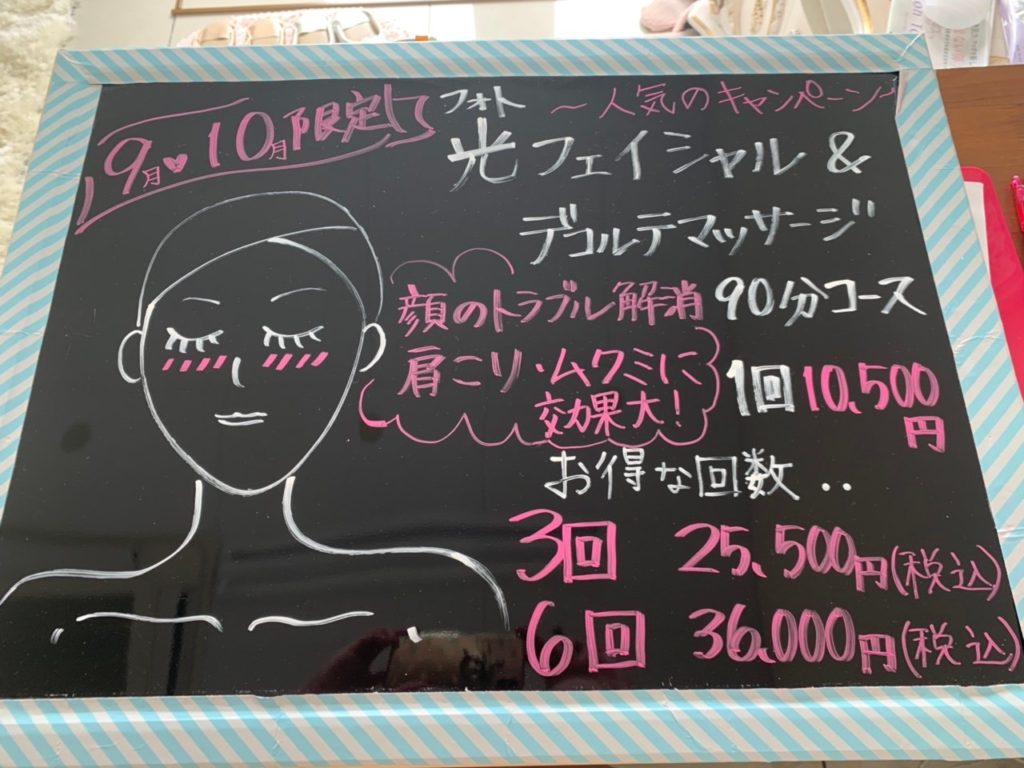 9月♥10月限定!
～人気のキャンペーン～
フォト
光フェイシャル &
デコルテマッサージ
90分コース
顔のトラブル解消
肩こり・ムクミに
効果大!
1回10,500
円
お得な回数‥
3回 25,500円(税込)
6回 36,000円(税込)